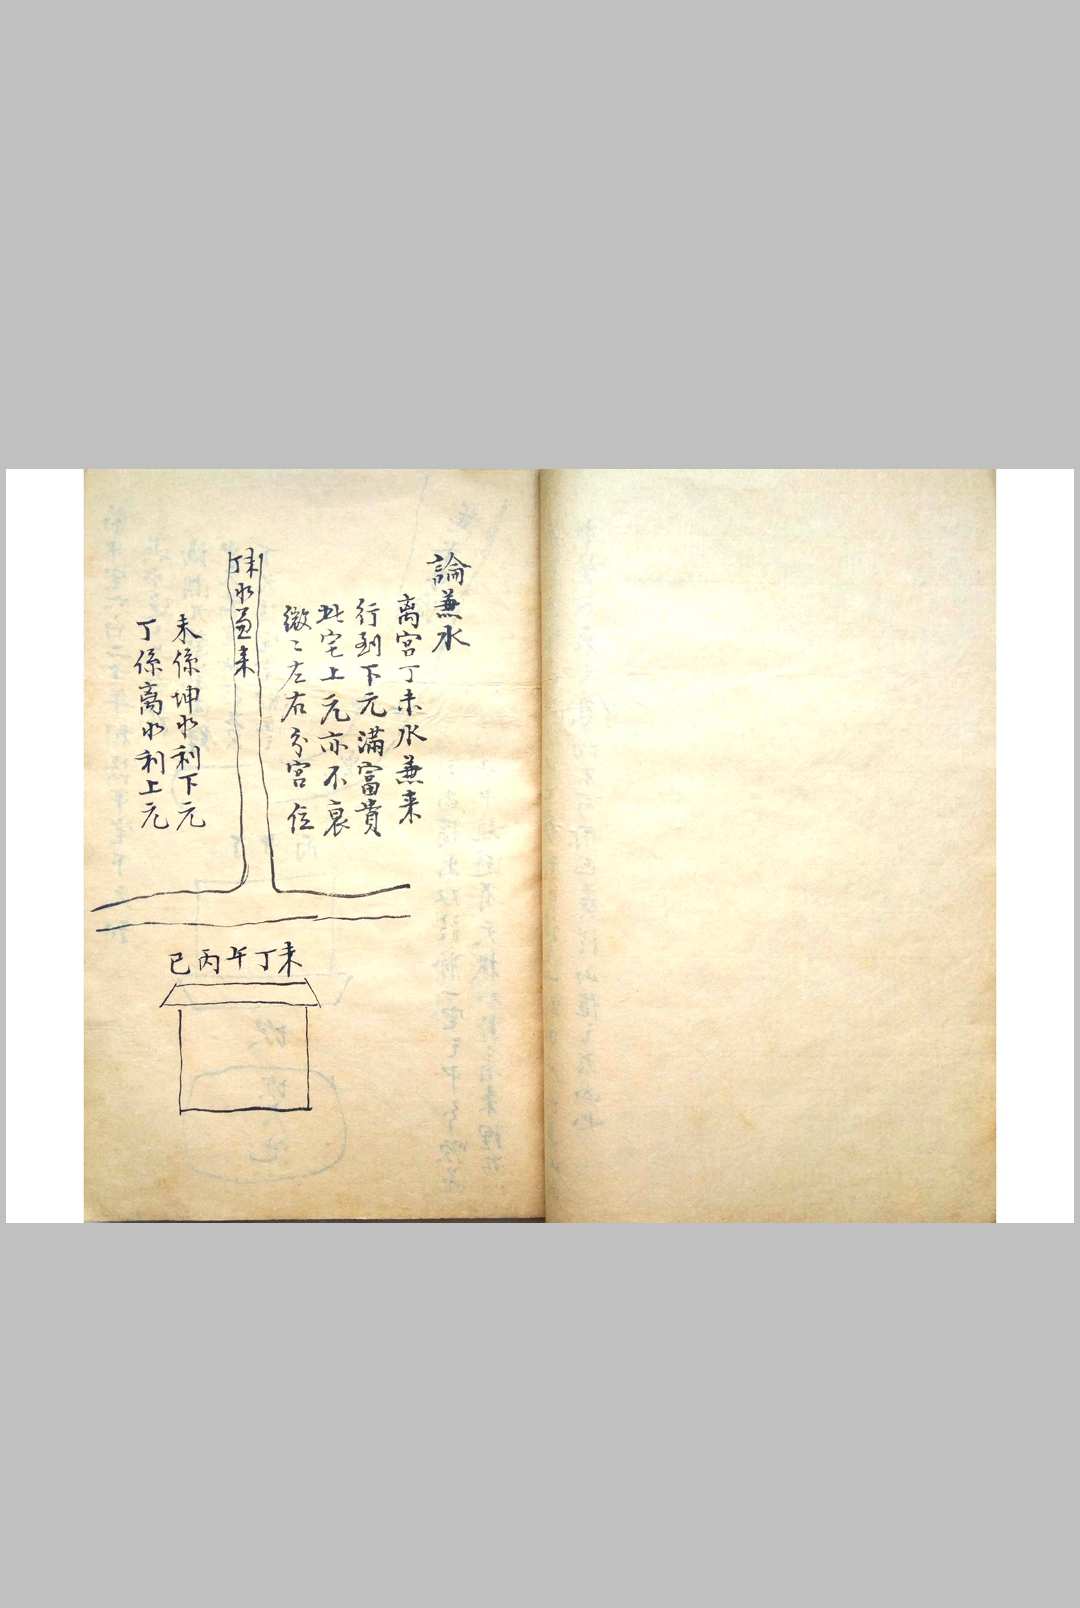 論兼水
离宮丁未水兼来
行到下元滿富貴
此宅上元亦不衰
微〻左右分宮位
丁未水兼来
未係坤水利下元
丁係离水利上元
巳丙午丁未